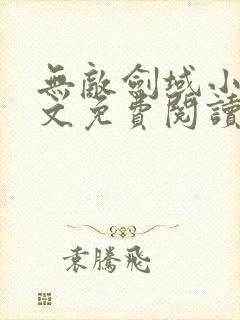 無敵劍域小
文免費閱讀
袁騰飛